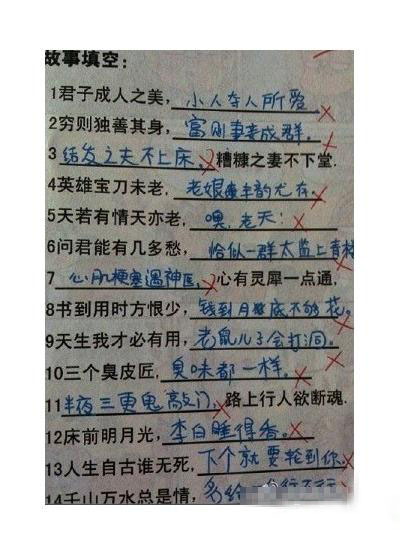 故事填空：
1君子成人之美，小人夺人所爱。
2穷则独善其身，富则妻妾成群。
3结发之夫不上床，糟糠之妻不下堂.
4英雄宝刀未老，老娘丰韵尤存。
5天若有情天亦老，噢，老天！
6问君能有几多愁，恰似一群太监上青楼
7心肌梗塞遇神医，心有灵犀一点通，
8书到用时方恨少，钱到月底不够花。
9天生我才必有用，老鼠儿子会打洞。
10三个臭皮匠，臭味都一样。
11半夜三更鬼敲门，路上行人欲断魂.
12床前明月光，李白睡得香。
13人生自古谁无死，下个就要轮到你。
14千山万水总是情，多给 行不行